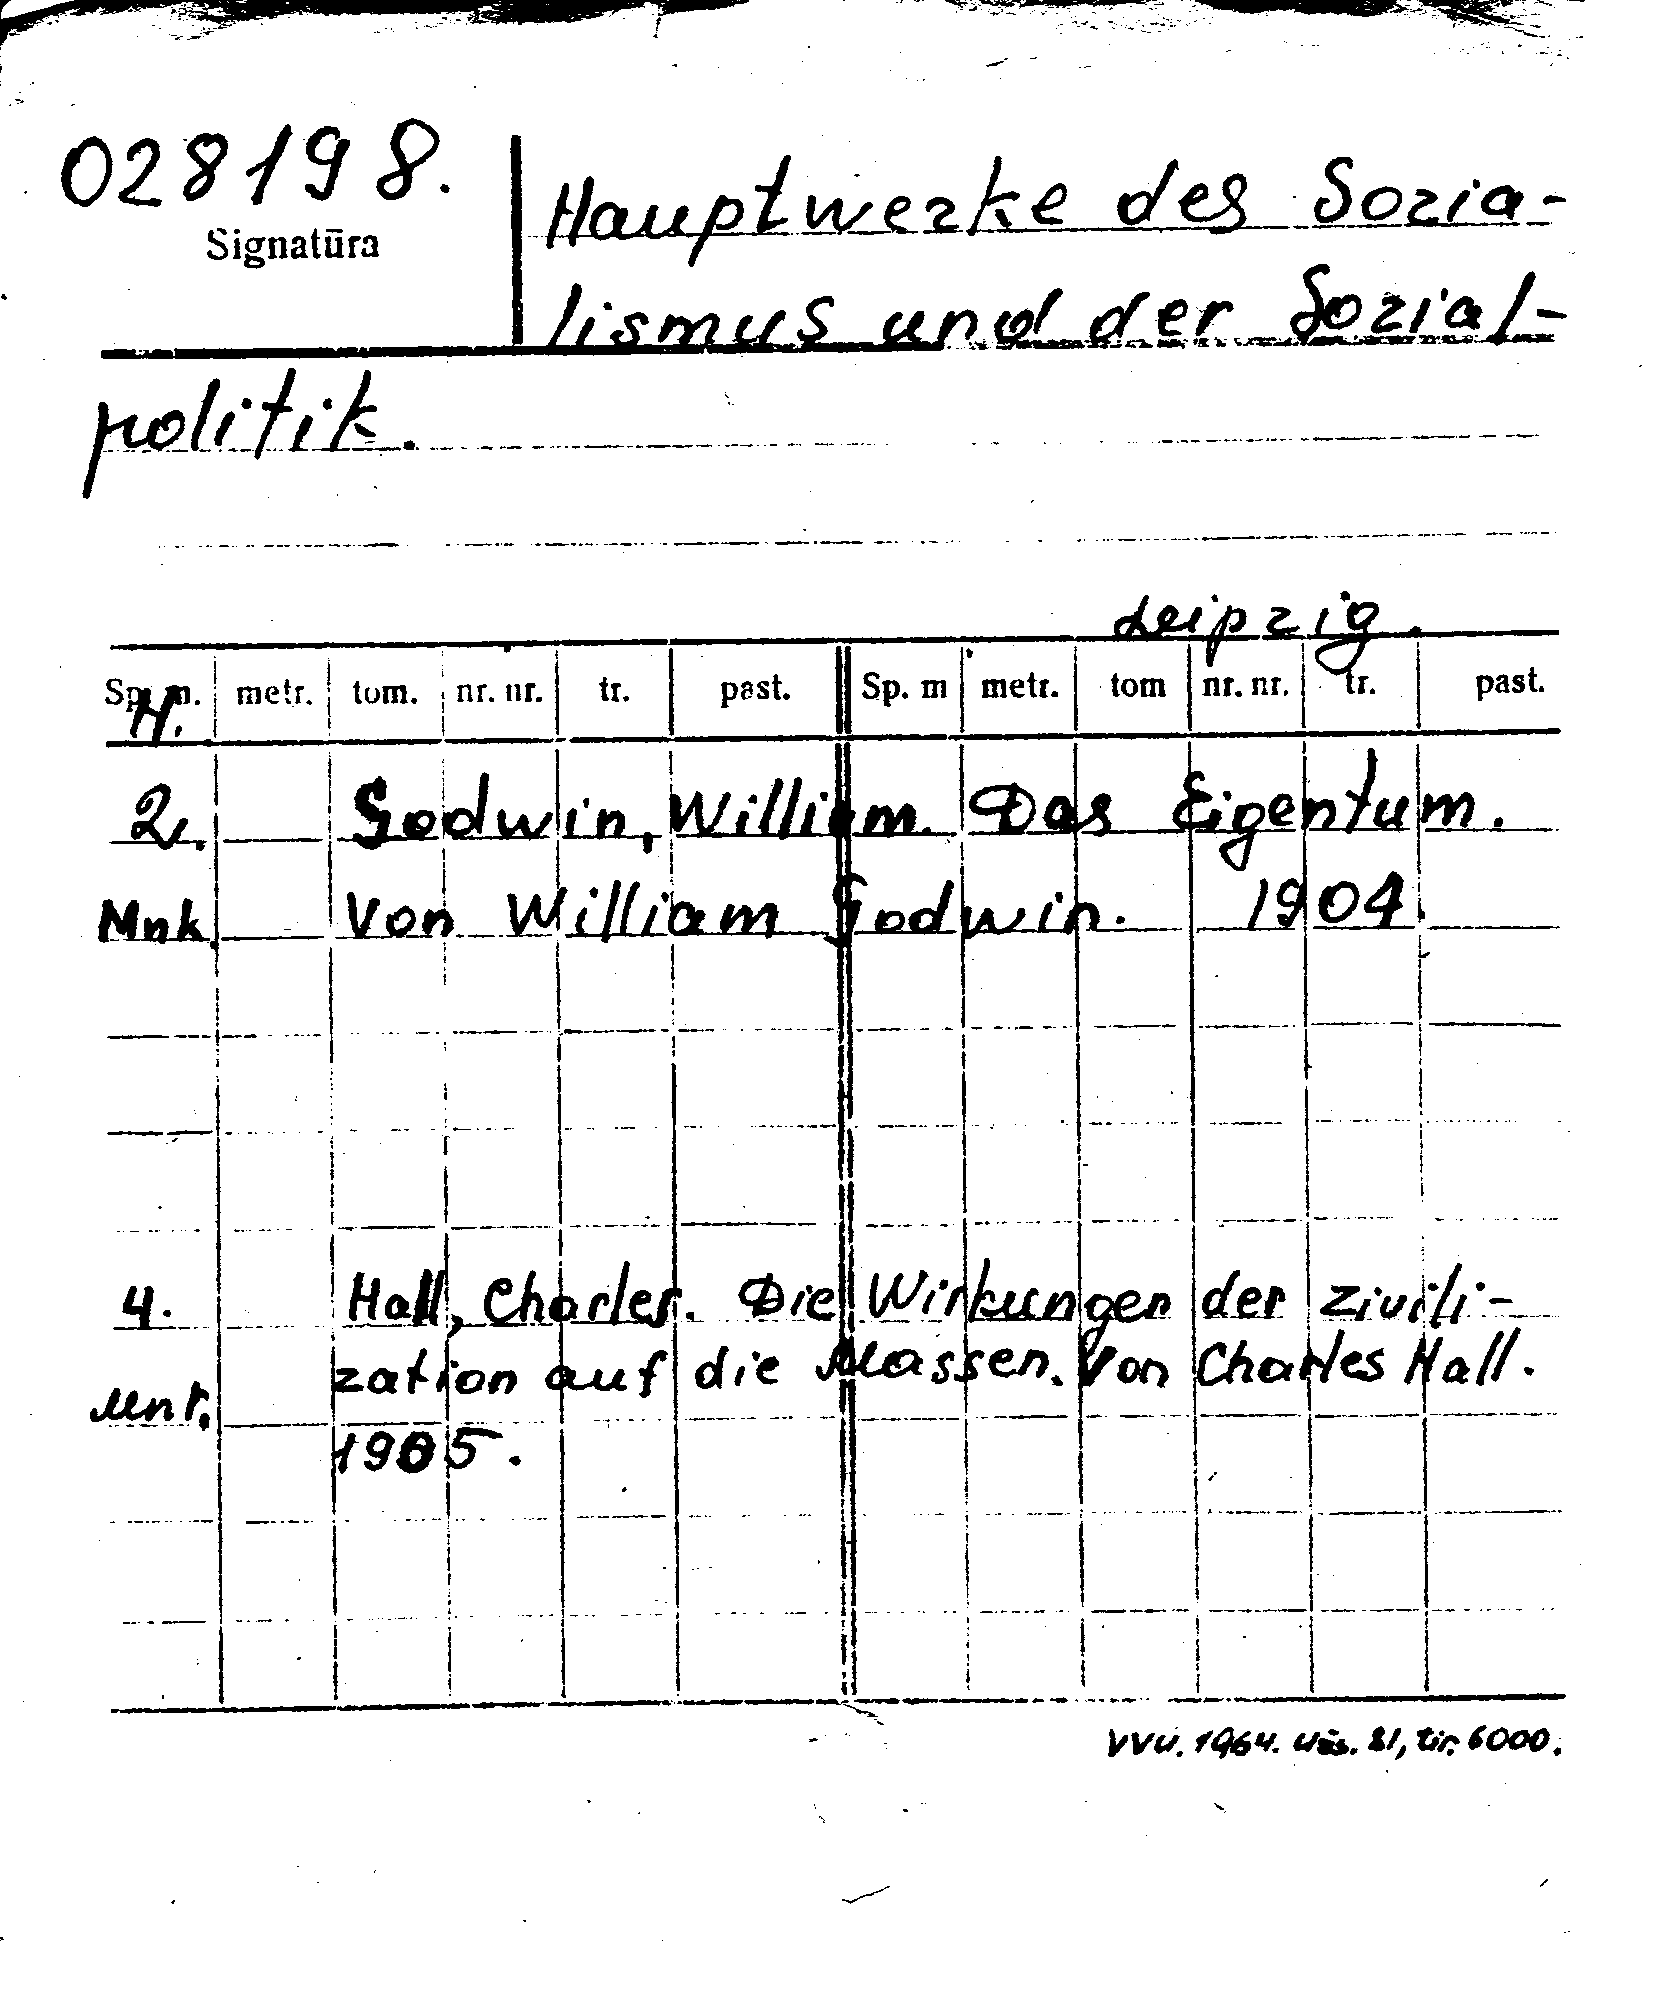 028198.
Signatūra
Hauptwerke des Sozia-
lismus und der Sozial-
politik.
Leipzig.
Sp. m. metr. tom. nr. nr. tr. past. Sp. m metr. tom nr. nr. tr. past.
H.
2. Godwin, William. Das Eigentum.
Mnk. Von William Godwin. 1904.
4. Hall, Charles. Die Wirkungen der zivili-
zation auf die Massen. Von Charles Hall.
Mnr.
1905.
VVU. 1964. Užs. 81, tir. 6000.